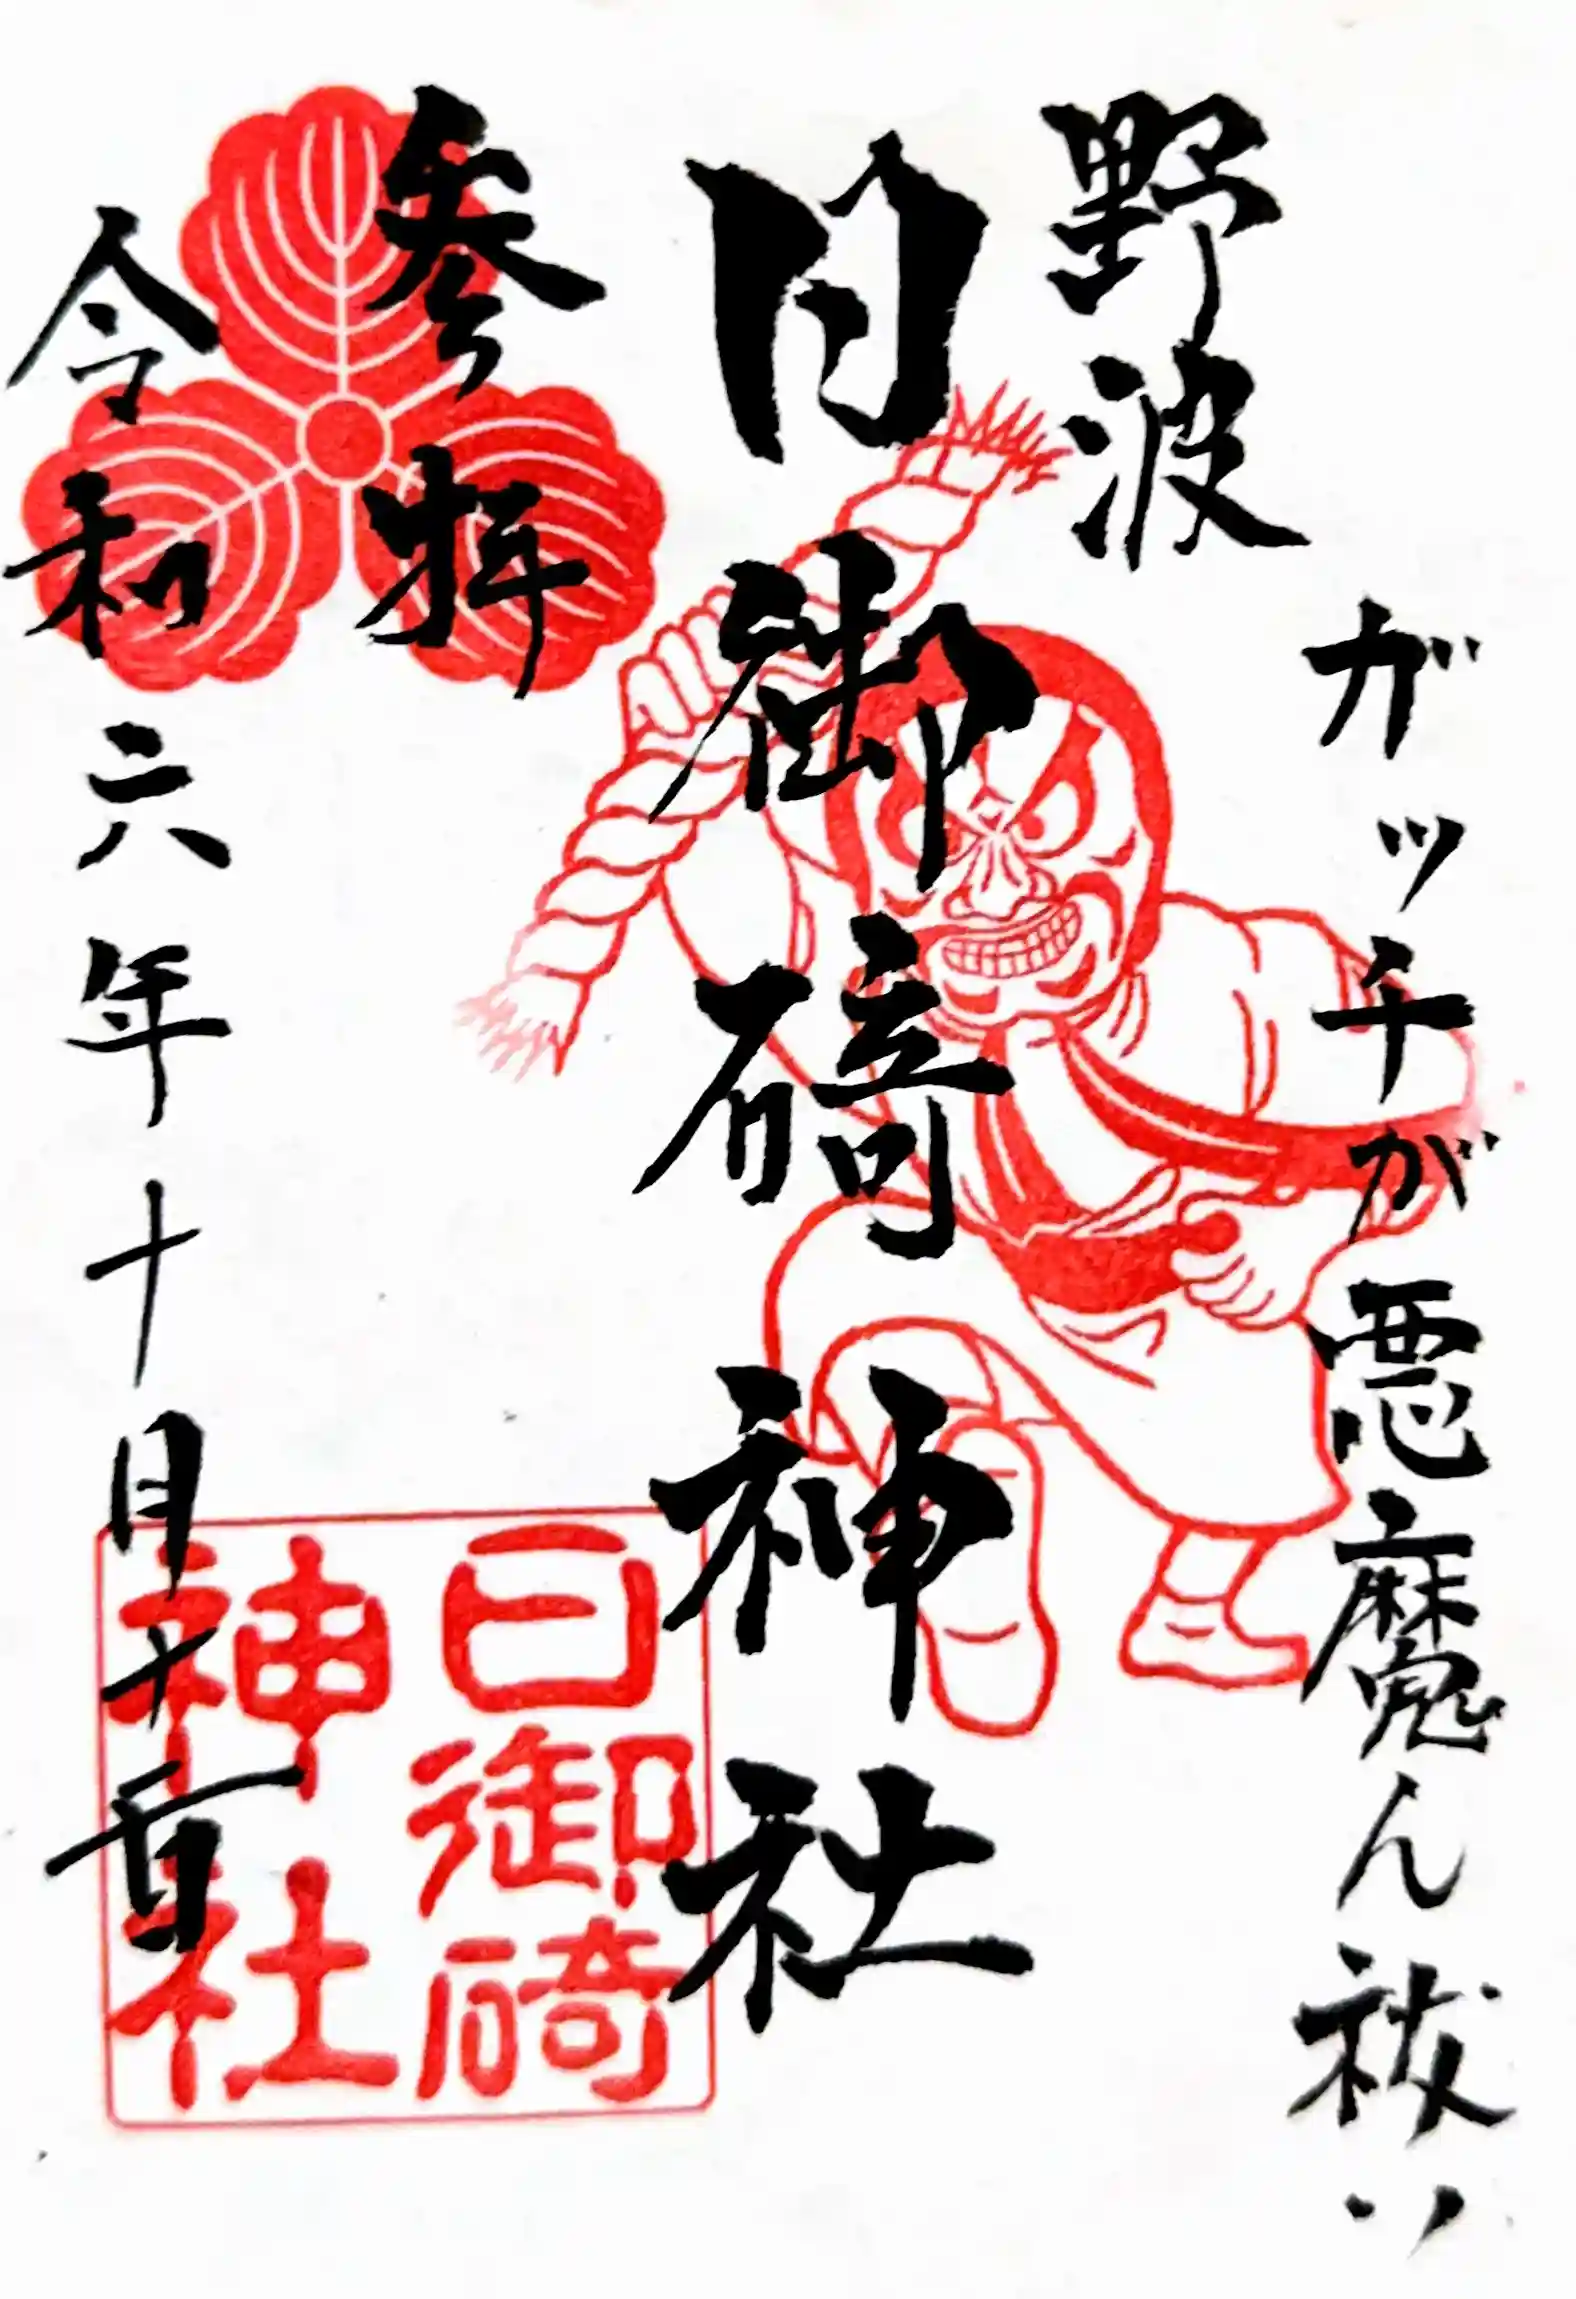 ガッチが悪魔ん祓い
野波
日御碕神社
参拝
令和六年十月十 日
日御碕
神社